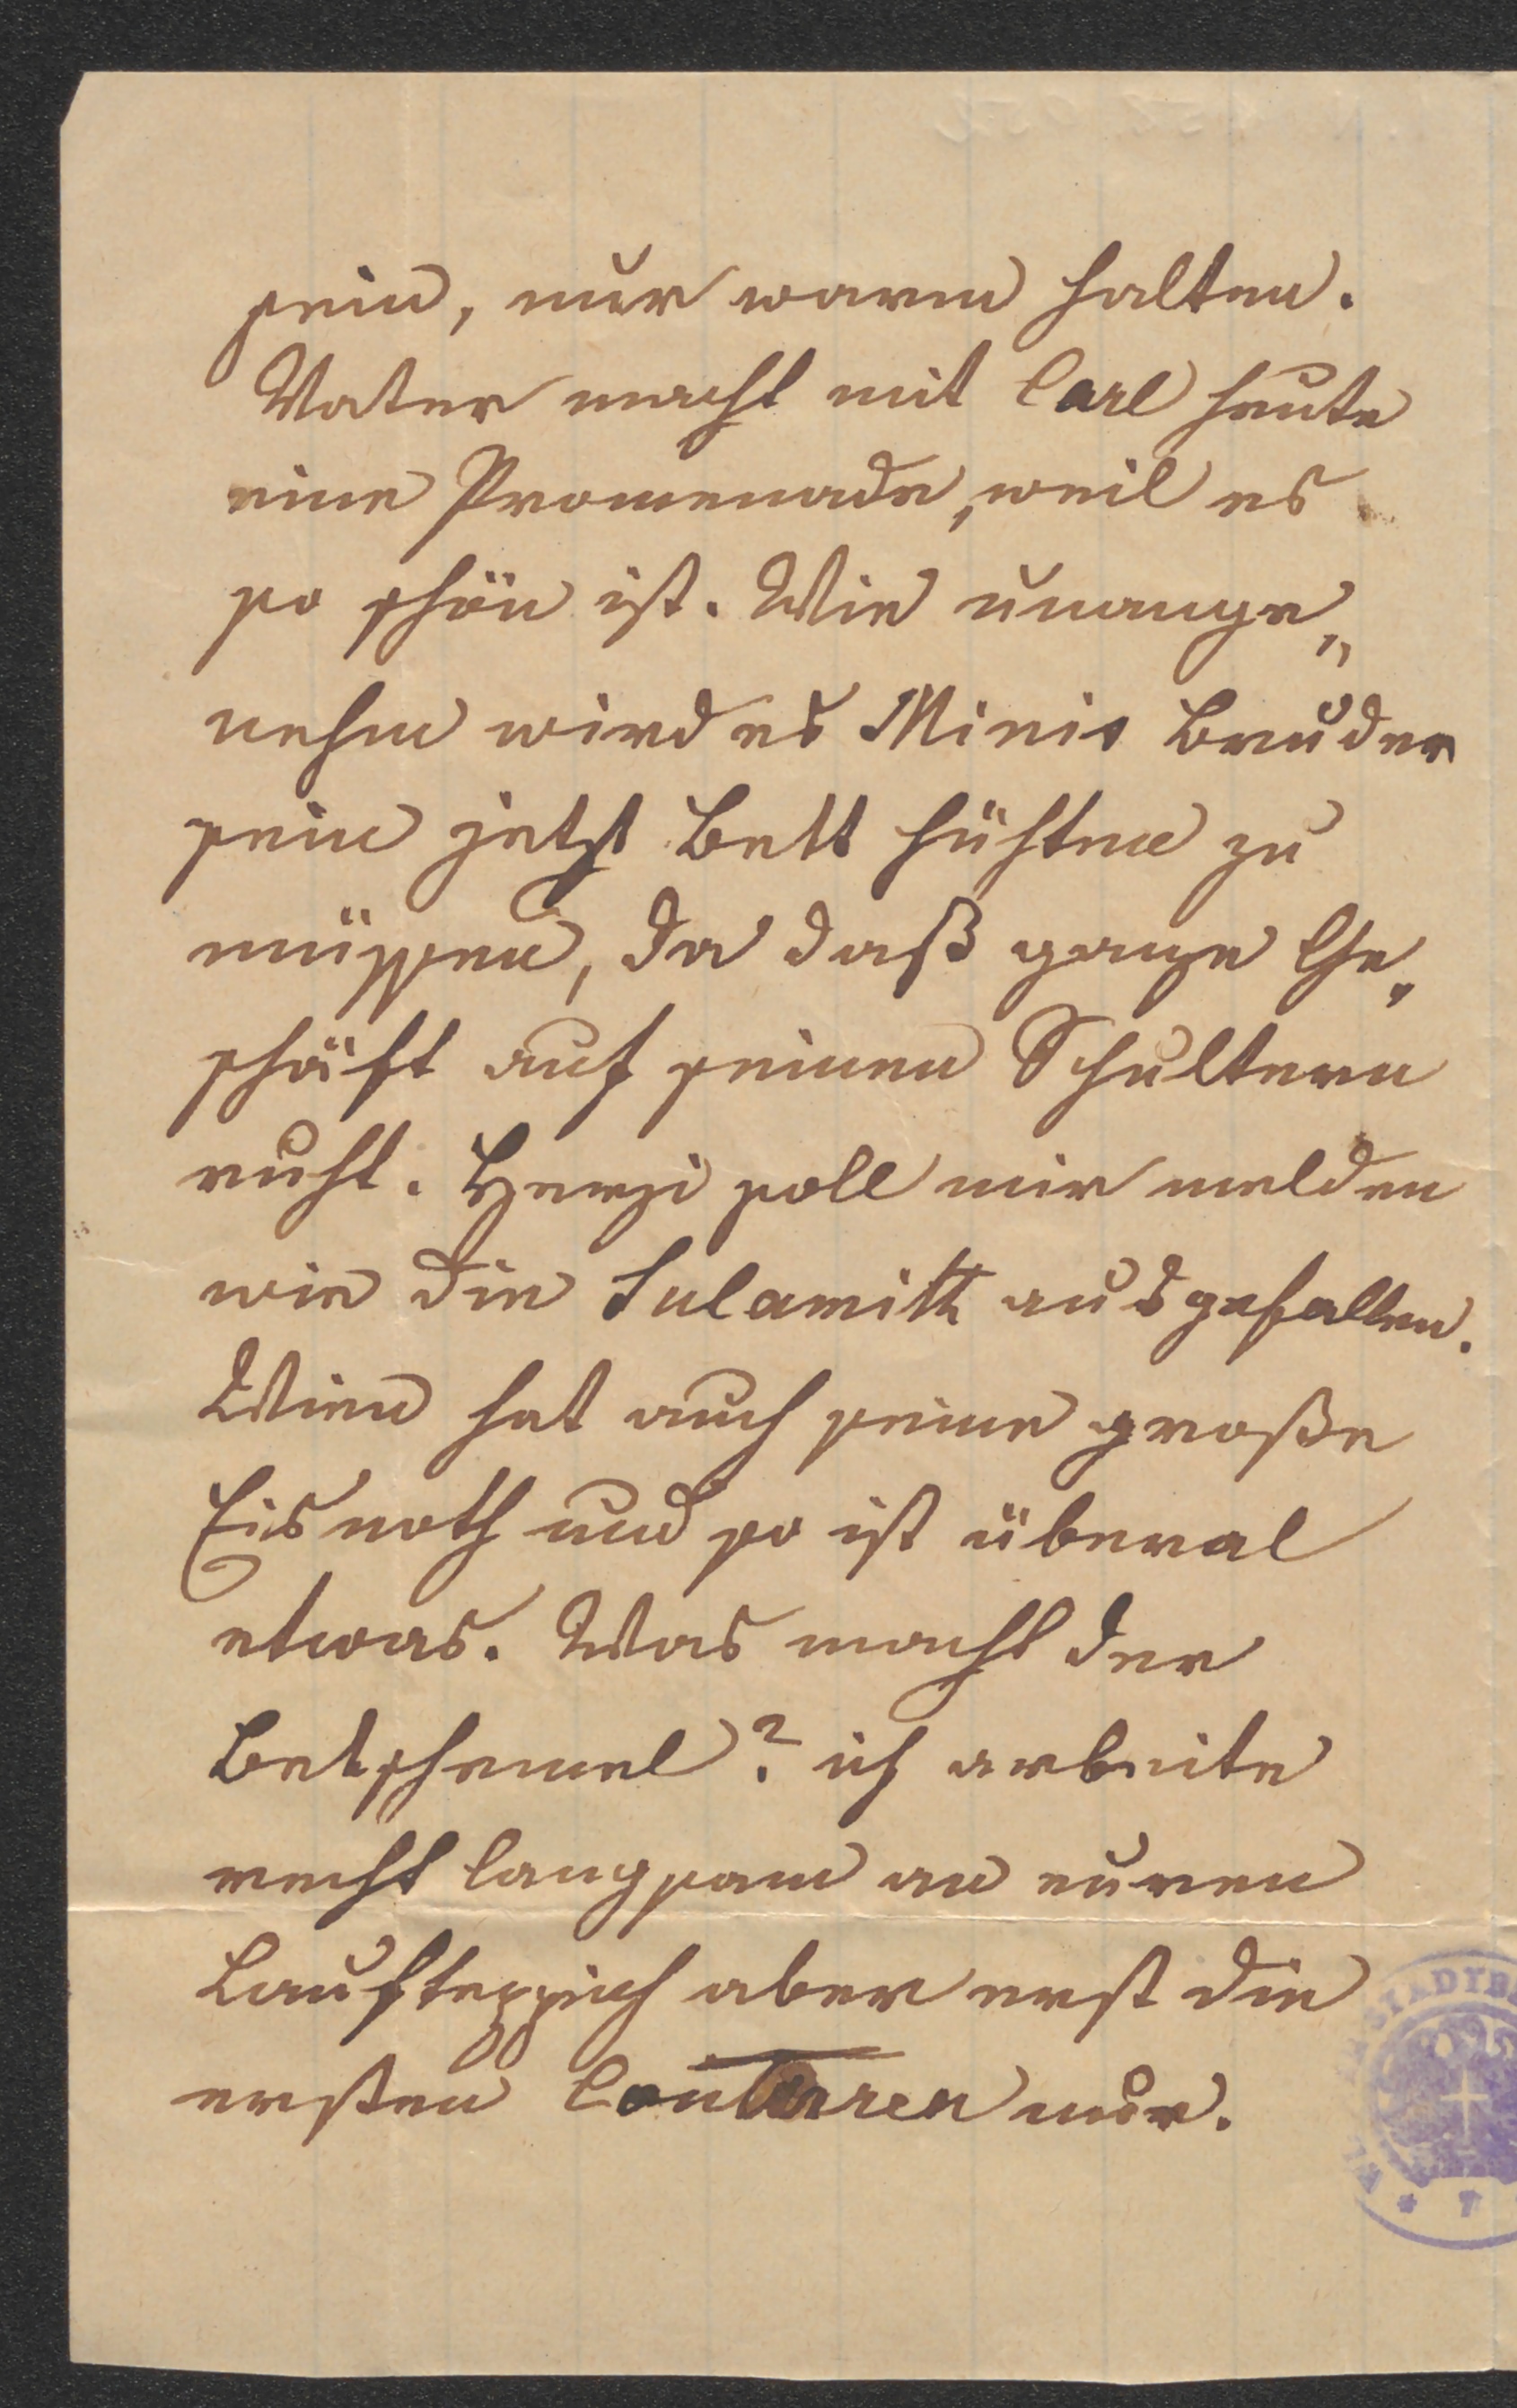 sein, nur warm halten.
Vater macht mit Carl heute
eine Promenade, weil es
so schön ist. Wie unange„
nehm wird es Minis Bruder
sein jetzt Bett hühten zu
müssen, da daß ganze Ge„
schäft auf seinen Schultern
ruht. Herzi soll mir melden
wie die Sulamith ausgefallen.
Wien hat auch seine große
Eisnoth und so ist überal
etwas. Was macht der
Betschemel? ich arbeite
recht langsam an euren
Laufteppich aber erst die
ersten nur.
STADTB